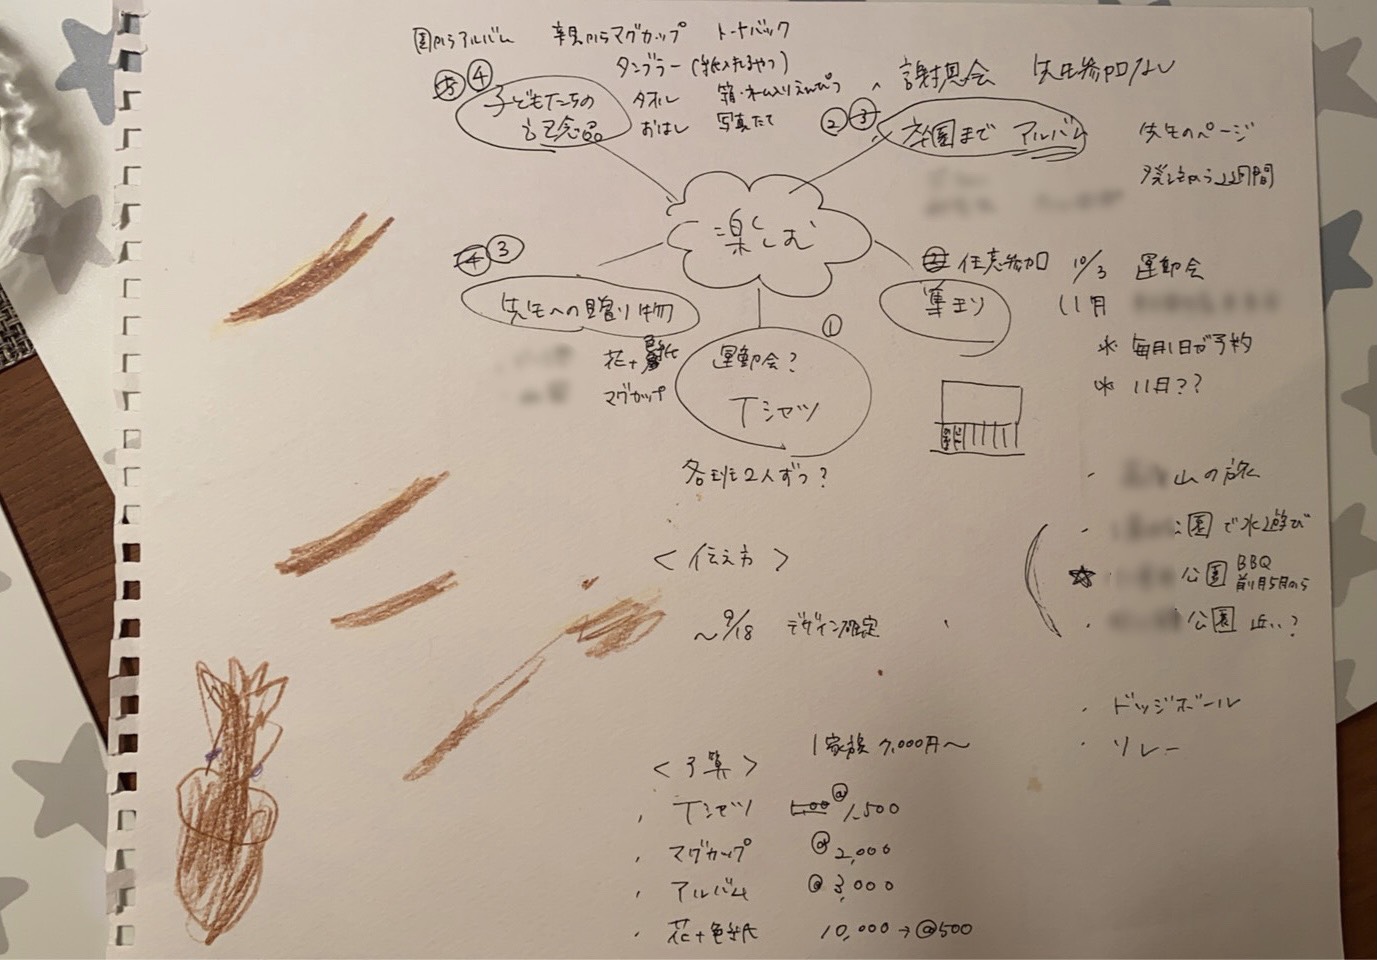 園からアルバム 親からマグカップ トートバック
タンブラー(紙入れるやつ)
⑤ ④ 子どもたちの
記念品
タオル 箱・ネーム入りえんぴつ
おはし 写真たて
謝恩会 先生参加なし
② ③ 卒園まで アルバム
先生のページ
2週間
楽しむ
④ ③
先生への贈り物
花+色紙
マグカップ
①
運動会?
Tシャツ
各班2人ずつ?
任意参加
集まり
10/3 運動会
11月
* 毎月1日が予約
* 11月??
・ 山の旅
・ 公園で水遊び
☆ 公園 BBQ
前月5日から
・ 公園 近い?
・ ドッジボール
・ リレー
<伝え方>
〜9/18 デザイン確定
<予算> 1家族 7,000円〜
・ Tシャツ @1,500
・ マグカップ @2,000
・ アルバム @3,000
・ 花+色紙 10,000→@500